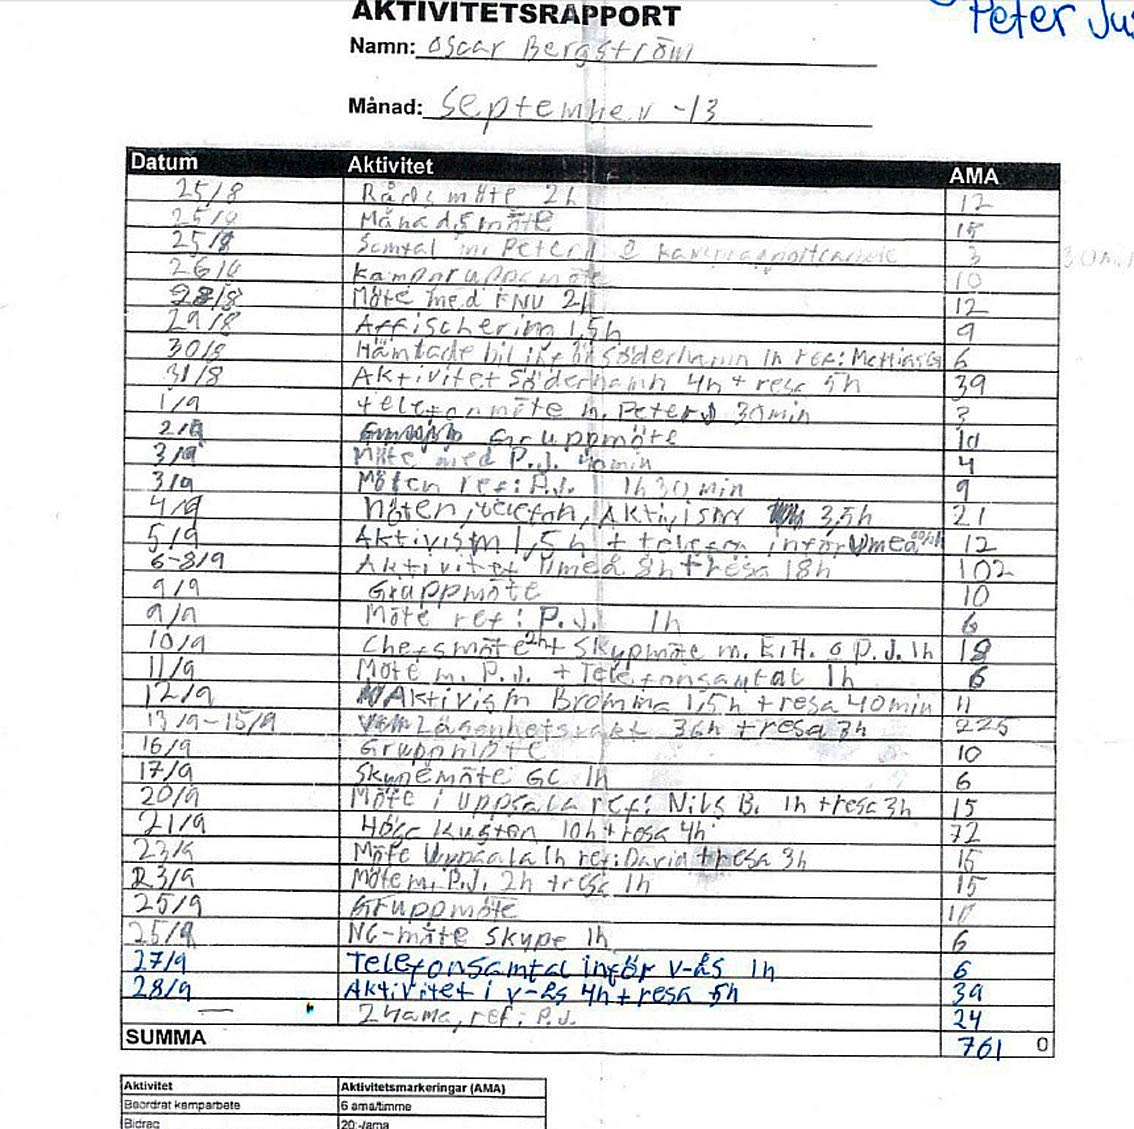 Peter Ju
AKTIVITETSRAPPORT
Namn: Oscar Bergström
Månad: September -13
Datum Aktivitet AMA
25/8 Råds möte 2h 12
25/8 Månadsmöte 15
25/8 Samtal m. Peter 3 30
26/8 kampgruppsmöte 10
28/8 Möte med FNU 2h 12
29/8 Affischering 1,5h 9
30/8 Hämtade bil inför söderhamn 1h ref: Mattias G 6
31/8 Aktivitet Söderhamn 4h + resa 5h 39
1/9 telefonmöte m. Peter J 30min 3
2/9 Gruppmöte 10
3/9 Möte med P.J. 40min 4
3/9 Möten ref: P.J. 1h 30 min 9
4/9 Möten, telefon, Aktivism 3,5h 21
5/9 Aktivism 1,5h + telefon inför Umeå 12
6-8/9 Aktivitet Umeå 8h + resa 18h 102
9/9 Gruppmöte 10
9/9 Möte ref: P.J. 1h 6
10/9 Chefsmöte 2h + Skypmöte m. E.H. o P.J. 1h 18
11/9 Möte m. P.J. + Telefonsamtal 1h 6
12/9 Aktivism Bromma 1,5h + resa 40min 11
13/9-15/9 36h + resa 3h 225
16/9 Gruppmöte 10
17/9 Skypemöte GC 1h 6
20/9 Möte i Uppsala ref: Nils B. 1h + resa 3h 15
21/9 Höga Kusten 10h + resa 4h 72
23/9 Möte Uppsala 1h ref: David + resa 3h 15
23/9 Möte m. P.J. 2h + resa 1h 15
25/9 Gruppmöte 10
25/9 NG-möte Skype 1h 6
27/9 Telefonsamtal inför V-ås 1h 6
28/9 Aktivitet i V-ås 4h + resa 5h 39
— 24ama, ref: P.J. 24
SUMMA 761 0
Aktivitet Aktivitetsmarkeringar (AMA)
Beordrat kamparbete 6 ama/timme
Bidrag 20:-/ama